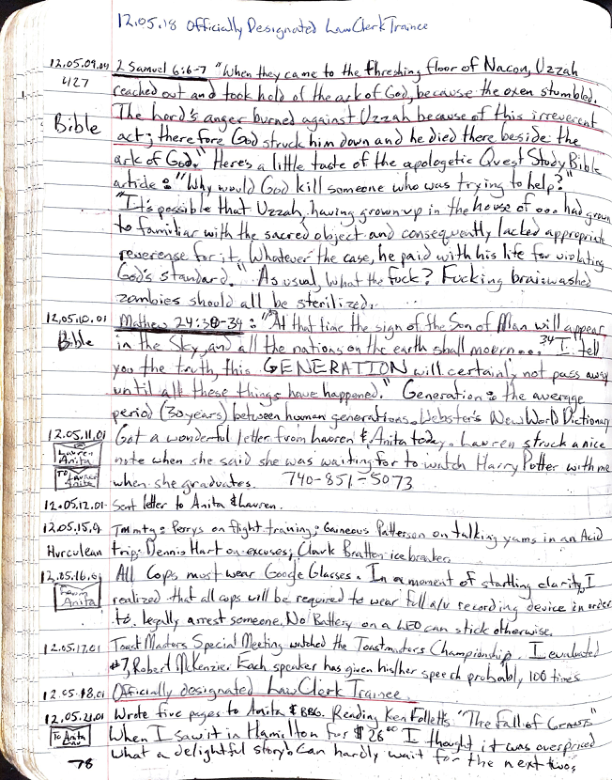 12.05.18 Officially Designated Law Clerk Trainee
12.05.09.04 2 Samuel 6:6-7 "When they came to the threshing floor of Nacon, Uzzah
427 reached out and took hold of the ark of God, because the oxen stumbled.
The Lord's anger burned against Uzzah because of this irreverent
Bible act; therefore God struck him down and he died there beside the
ark of God." Here's a little taste of the apologetic Quest Study Bible
article: "Why would God kill someone who was trying to help?"
"It's possible that Uzzah, having grown up in the house of ... had grown
to familiar with the sacred object and consequently lacked appropriate
reverense for it. Whatever the case, he paid with his life for violating
God's standard." As usual what the fuck? Fucking brainwashed
zombies should all be sterilized.
12.05.10.01 Mathew 24:30-34: "At that time the sign of the Son of Man will appear
Bible in the sky, and all the nations on the earth shall mourn... 34 I tell
you the truth, this GENERATION will certainly not pass away
until all these things have happened." Generation: the average
period (30 years) between human generations. Webster's New World Dictionary
12.05.11.01 Got a wonderful letter from Lauren & Anita today. Lauren struck a nice
Lauren Anita note when she said she was waiting for to watch Harry Potter with me
To Lauren Anita when she graduates. 740-851-5073
12.05.12.01 Sent letter to Anita & Lauren.
12.05.15.9 Tmmtg: Perrys on flight training; Patterson on talking yams in an Acid
Hurculean trip; Dennis Hart on excuses; Clark Bratten icebreaker.
12.05.16. All Cops must wear Google Glasses. In a moment of startling clarity, I
From Anita realized that all cops will be required to wear full a/v recording device in order
to legally arrest someone. No Battery on a LEO can stick otherwise.
12.05.17.01 Toast Masters Special Meeting watched the Toastmasters Championship. I evaluated
#7, Robert McKenzie. Each speaker has given his/her speech probably 100 times
12.05.18.01 Officially designated Law Clerk Trainee.
12.05.21.01 Wrote five pages to Anita & . Reading Ken Follett's "The Fall of Giants"
To Anita When I saw it in Hamilton for $28.00 I thought it was overpriced
78 what a delightful story. Can hardly wait for the next two.